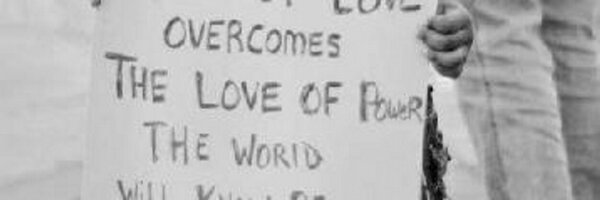 LOVE
OVERCOMES
THE LOVE OF POWER
THE WORLD
WILL KNOW